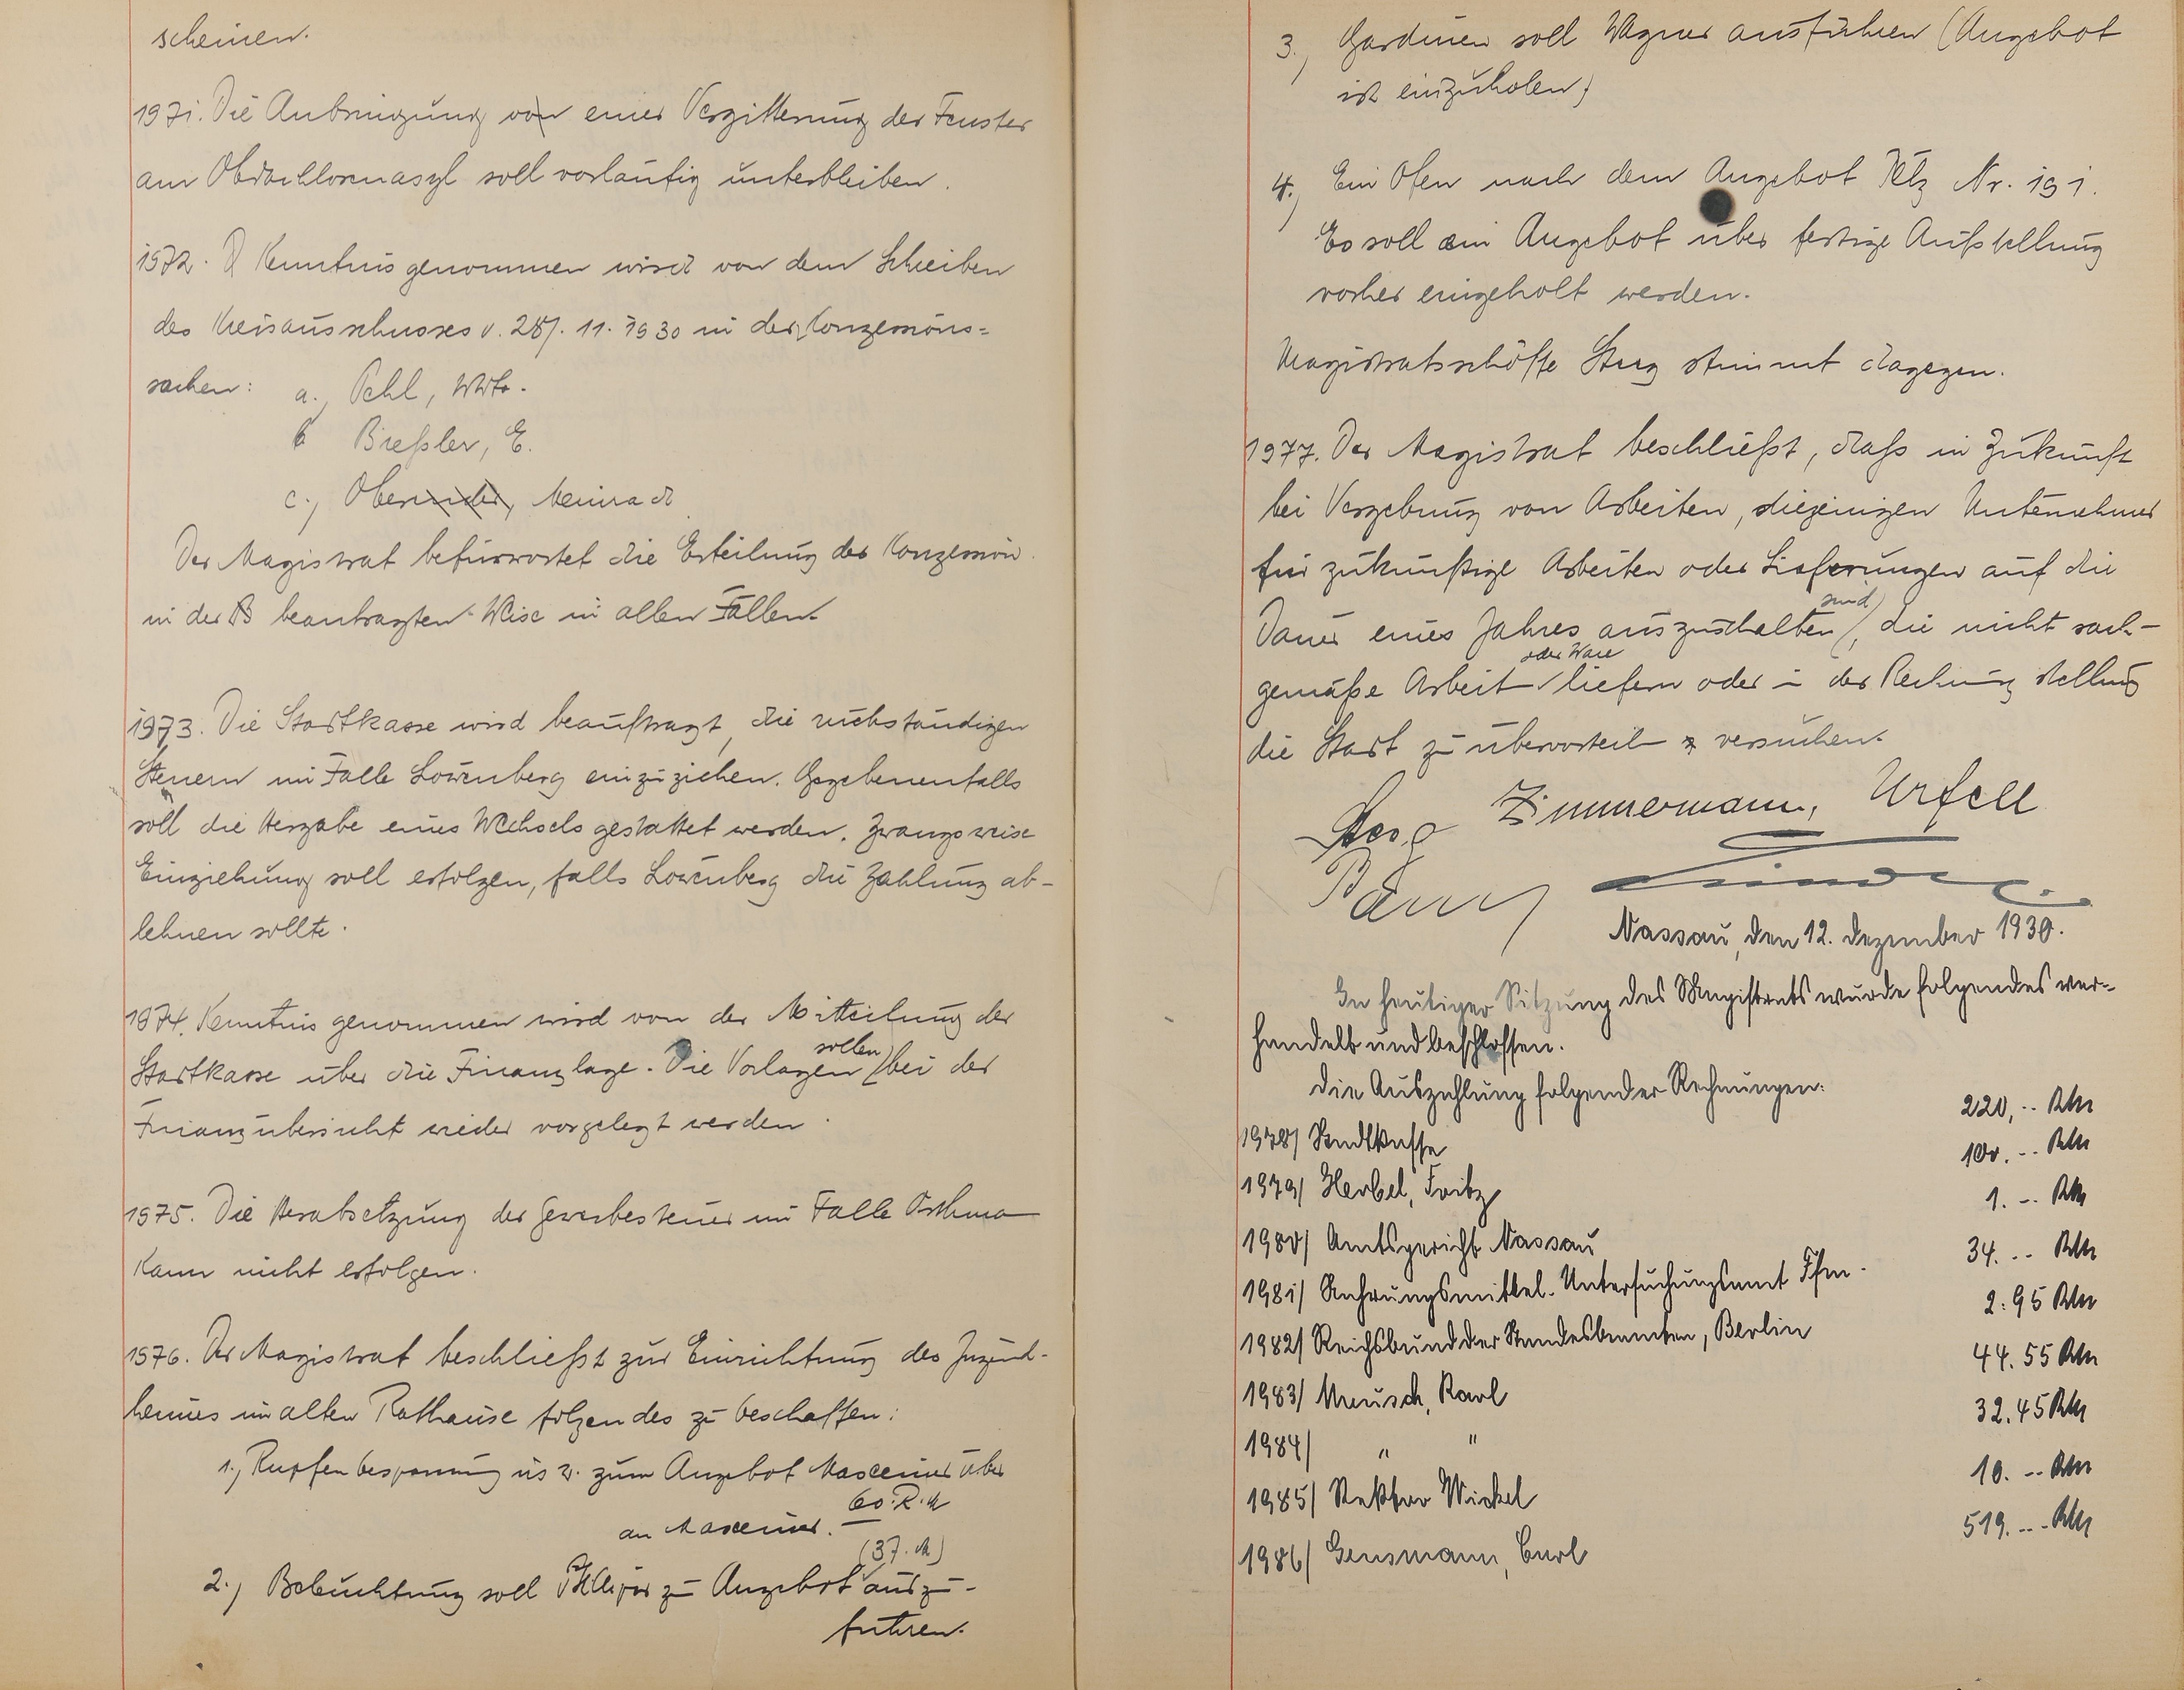 scheinen.
1971. Die Anbringung von einer Vergitterung der Fenster
am Obdachlosenasyl soll vorläufig unterbleiben.
1972. Kenntnis genommen wird von dem Schreiben
des Kreisausschusses v. 28/. 11. 1930 in der Konzessions=
sachen: a., Pehl, Wwe.
b Breßler, E.
c., Obernder, Meinrad
Der Magistrat befürwortet die Erteilung der Konzession
in der B beantragten Weise in allen Fällen.
1973. Die Stadtkasse wird beauftragt, die rückständigen
Steuern im Falle Löwenberg einzuziehen. Gegebenenfalls
soll die Hergabe eines Wechsels gestattet werden. Zwangsweise
Einziehung soll erfolgen, falls Löwenberg die Zahlung ab-
lehnen sollte.
1974. Kenntnis genommen wird von der Mitteilung der
Stadtkasse über die Finanzlage. Die Vorlagen sollen bei der
Finanzübersicht wieder vorgelegt werden.
1975. Die Herabsetzung der Gewerbesteuer im Falle
kann nicht erfolgen.
1976. Der Magistrat beschließt zur Einrichtung des Jugend-
heimes im alten Rathause folgendes zu beschaffen:
1., Rupfenbespannung us w. zum Angebot über
60.R.M
an
(37. M)
2., Beleuchtung soll zu Angebot auszu-
führen.
3., Gardinen soll Wagner ausführen (Angebot
ist einzuholen)
4., Ein Ofen nach dem Angebot Nr. 191.
Es soll ein Angebot über fertige Aufstellung
vorher eingeholt werden.
Magistratsschöffe Sterg stimmt dagegen.
1977. Der Magistrat beschließt, daß in Zukunft
bei Vergebung von Arbeiten, diejenigen Unternehmer
für zukünftige Arbeiten oder Lieferungen auf die
Dauer eines Jahres auszuschalten sind, die nicht sach-
gemäße Arbeit oder Ware liefern oder in der Rechnungstellung
die Stadt zu übervorteil versuchen.
Zimmermann, Urfell
Nassau, den 12. Dezember 1930.
In heutiger Sitzung des Magistrats wurde folgendes ver-
handelt und beschlossen.
Die Auszahlung folgender Rechnungen:
1978/ Stadtkasse 220,-- RM
1979/ Herbel, Fritz 100.-- RM
1980/ Amtsgericht Nassau 1.-- RM
1981/ Nahrungsmittel-Untersuchungsamt Ffm. 34.-- RM
1982/ Reichsbund der Standesbeamten, Berlin 2.95 RM
1983/ Meusch, Karl 44.55 RM
1984/ " " 32.45 RM
1985/ Rektor Wickel 10.-- RM
1986/ Gensmann, Carl 519.-- RM